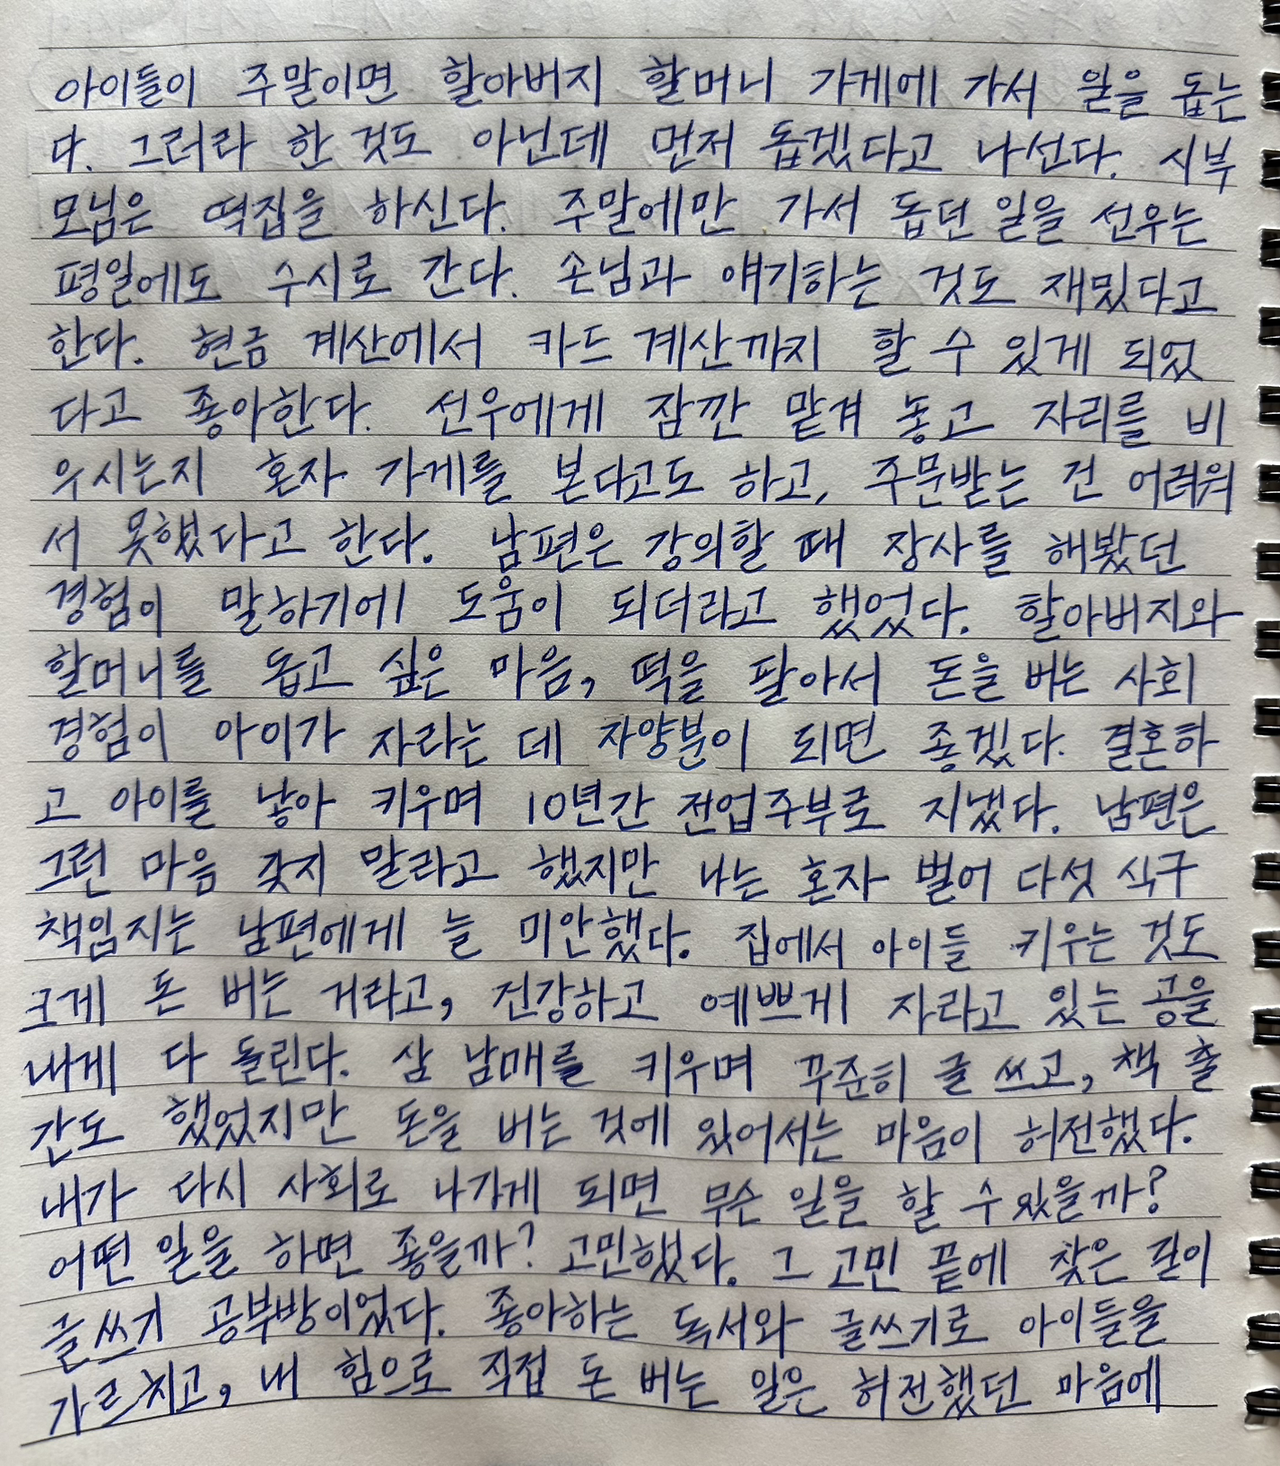 아이들이 주말이면 할아버지 할머니 가게에 가서 일을 돕는
다. 그러라 한 것도 아닌데 먼저 돕겠다고 나선다. 시부
모님은 떡집을 하신다. 주말에만 가서 돕던 일을 선우는
평일에도 수시로 간다. 손님과 얘기하는 것도 재밌다고
한다. 현금 계산에서 카드 계산까지 할 수 있게 되었
다고 좋아한다. 선우에게 잠깐 맡겨 놓고 자리를 비
우시는지 혼자 가게를 본다고도 하고, 주문받는 건 어려워
서 못했다고 한다. 남편은 강의할 때 장사를 해봤던
경험이 말하기에 도움이 되더라고 했었다. 할아버지와
할머니를 돕고 싶은 마음, 떡을 팔아서 돈을 버는 사회
경험이 아이가 자라는 데 자양분이 되면 좋겠다. 결혼하
고 아이를 낳아 키우며 10년간 전업주부로 지냈다. 남편은
그런 마음 갖지 말라고 했지만 나는 혼자 벌어 다섯 식구
책임지는 남편에게 늘 미안했다. 집에서 아이들 키우는 것도
크게 돈 버는 거라고, 건강하고 예쁘게 자라고 있는 공을
내게 다 돌린다. 삼 남매를 키우며 꾸준히 글 쓰고, 책 출
간도 했었지만 돈을 버는 것에 있어서는 마음이 허전했다.
내가 다시 사회로 나가게 되면 무슨 일을 할 수 있을까?
어떤 일을 하면 좋을까? 고민했다. 그 고민 끝에 찾은 길이
글쓰기 공부방이었다. 좋아하는 독서와 글쓰기로 아이들을
가르치고, 내 힘으로 직접 돈 버는 일은 허전했던 마음에